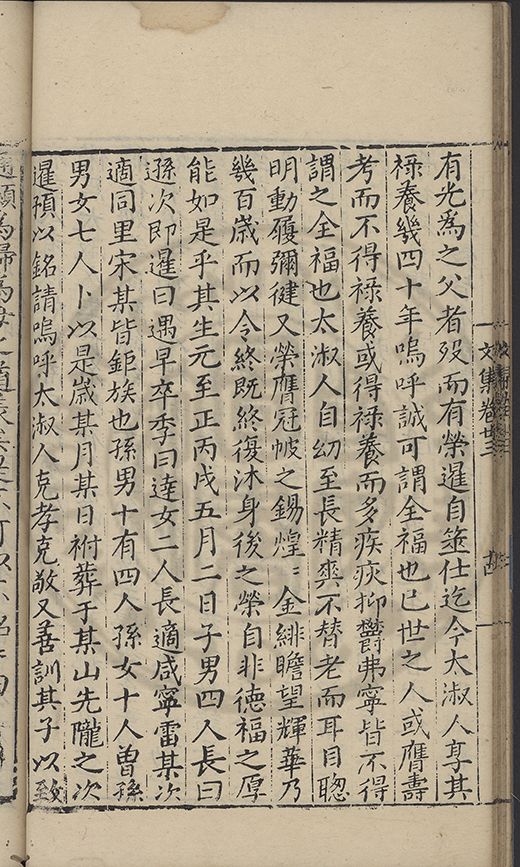 文集卷廿三
有光爲之父者歿而有榮暹自筮仕迄今太淑人享其
祿養幾四十年嗚呼誠可謂全福也已世之人或膺壽
考而不得祿養或得祿養而多疾疢抑欝弗寧皆不得
謂之全福也太淑人自幼至長精爽不替老而耳目聰
明動履彌健又榮膺冠帔之錫煌〻金緋瞻望輝華乃
幾百歲而以令終既終復沐身後之榮自非德福之厚
能如是乎其生元至正丙戌五月二日子男四人長曰
遜次即暹曰遇早卒季曰達女二人長適咸寧雷某次
適同里宋某皆鉅族也孫男十有四人孫女十人曾孫
男女七人卜以是歲某月某日祔葬于某山先隴之次
暹預以銘請嗚呼太淑人克孝克敬又善訓其子以致